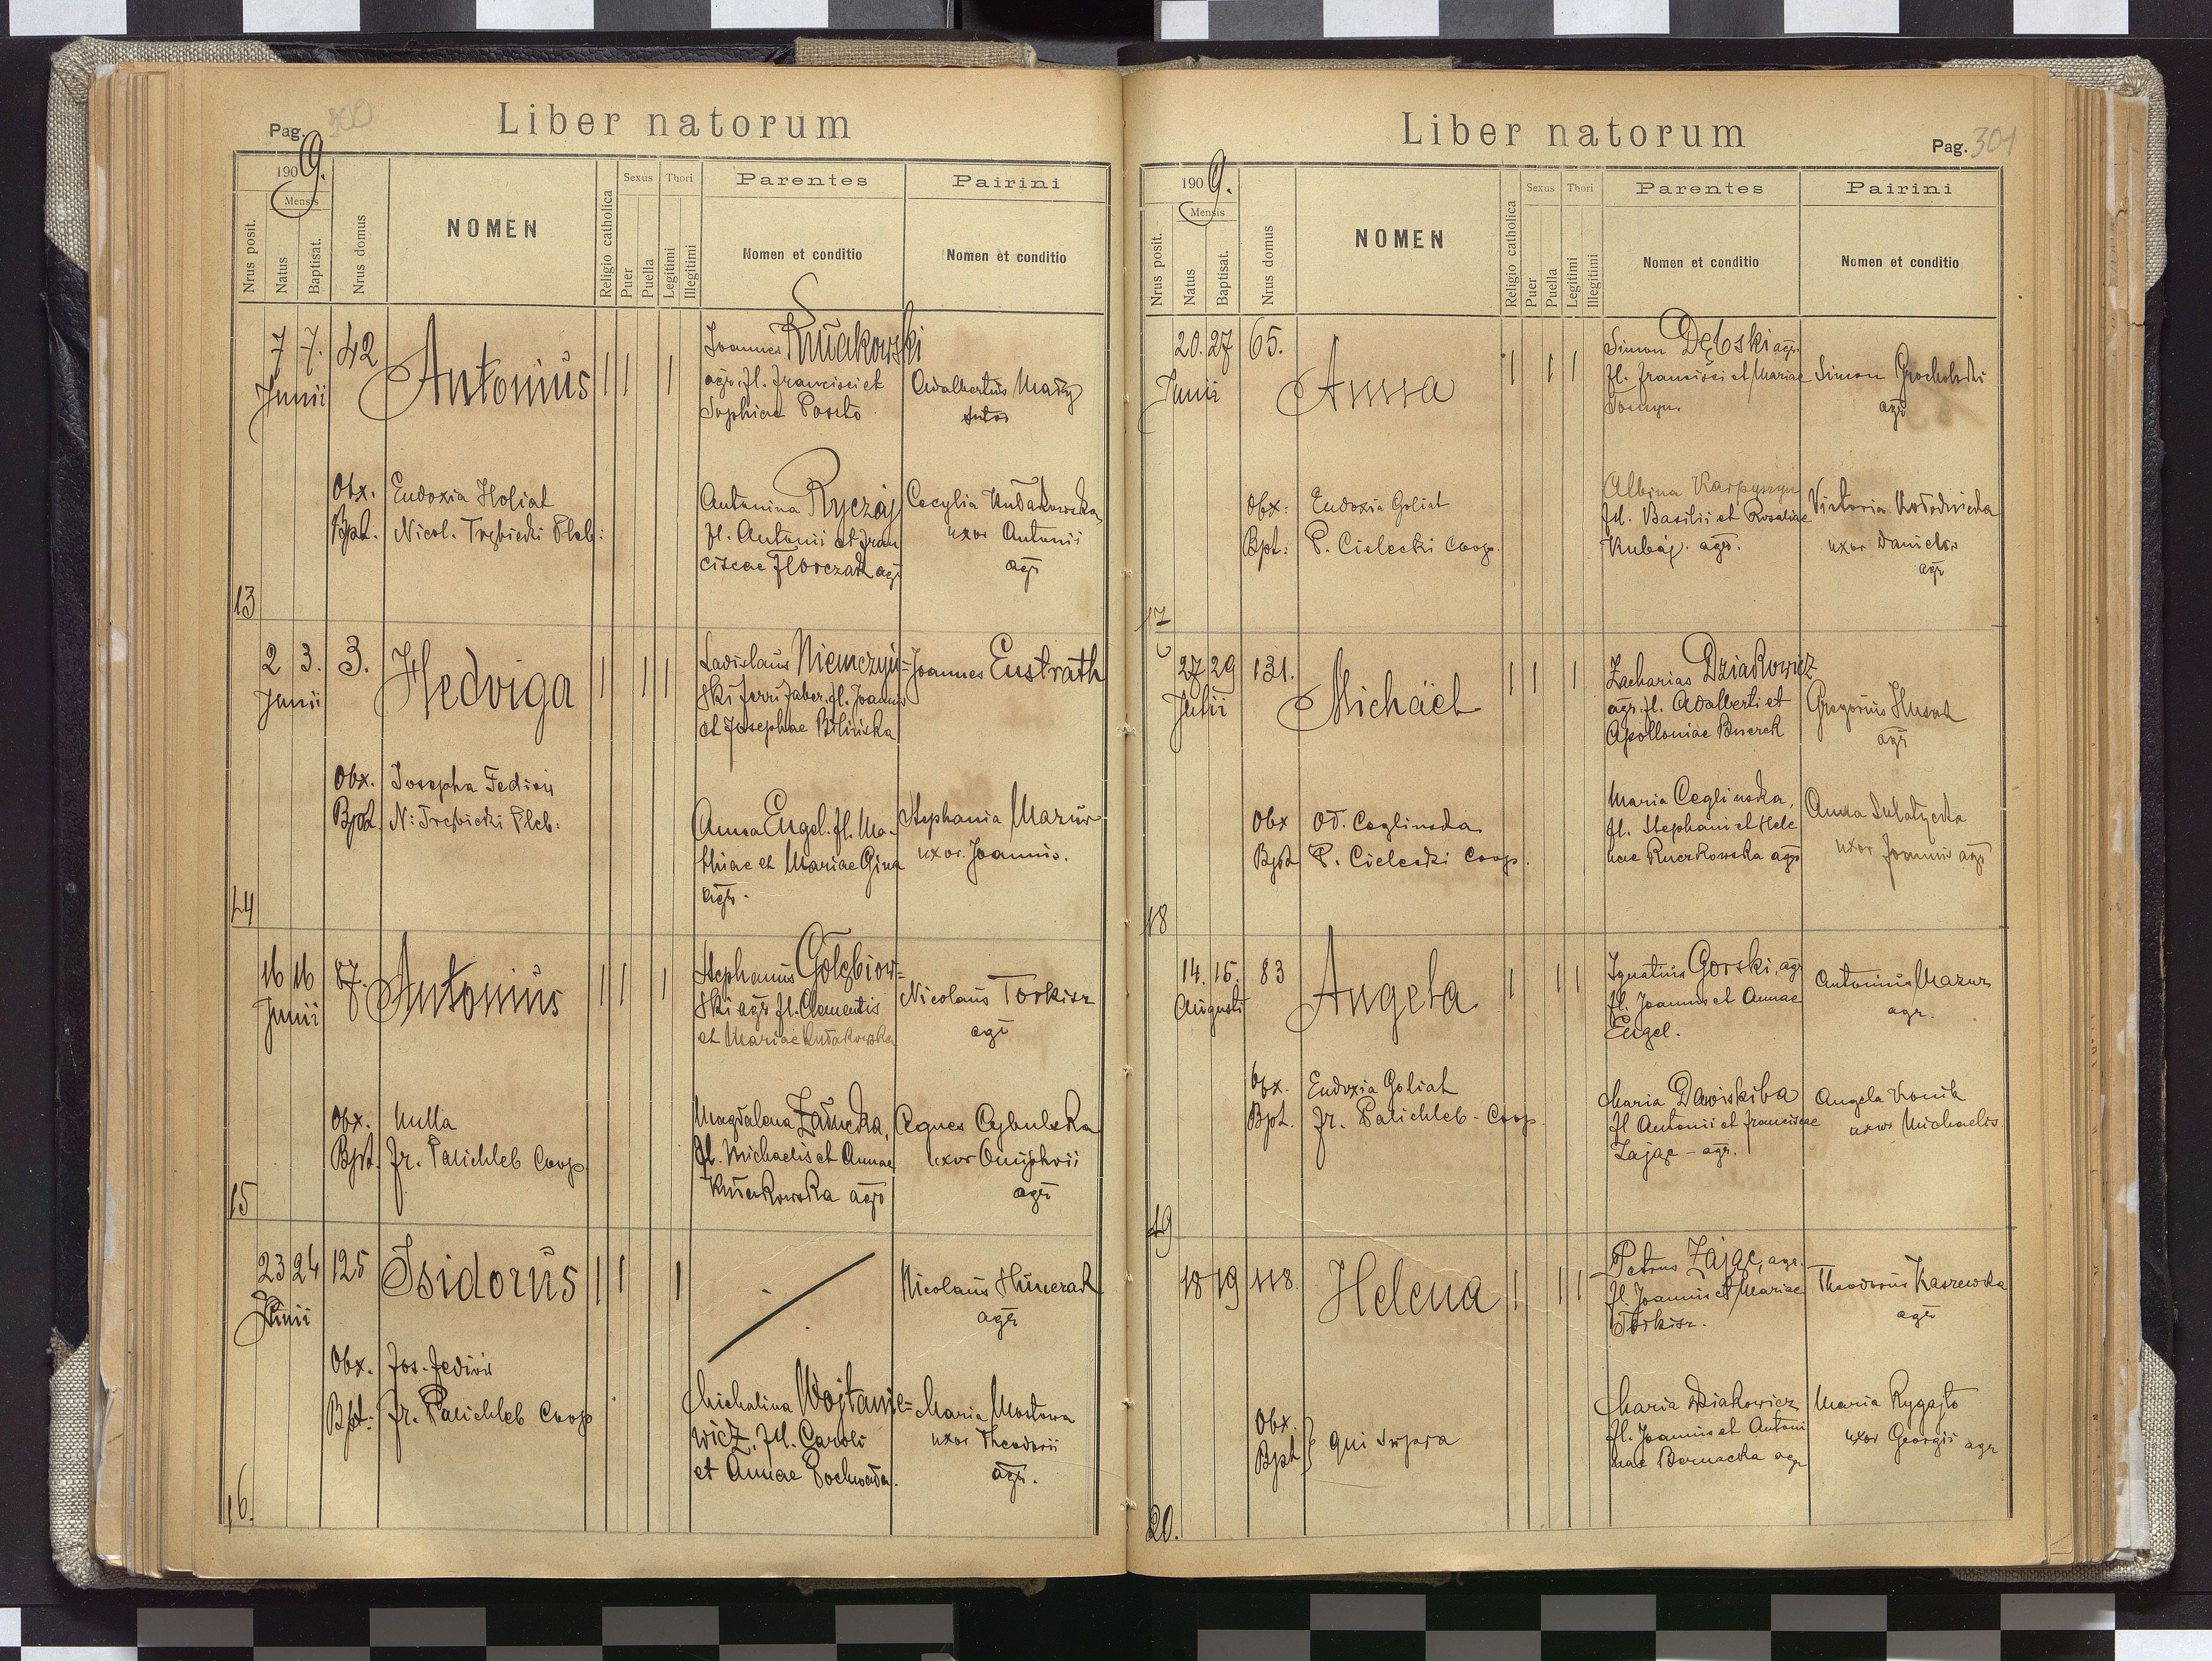 Pag. 300
Liber natorum
1909.
Mensis
Nrus posit.
Natus
Baptisat.
Nrus domus
NOMEN
Religio catholica
Sexus
Puer
Puella
Thori
Legitimi
Illegitimi
Parentes
Nomen et conditio
Pairini
Nomen et conditio
13
7 7. 42
Junii
Antonius
Obx. Eudoxia Holiat
Bpt. Nicol. Trębicki Pleb:
Joannes
agr. fl. Francisci et
Sophiae
Antonina Ryczaj
fl. Antonii et Fran
ciscae Florczak agr
Adalbertus
Cecylia Kudakowska
uxor Antonii
agr
14
2 3. 3.
Junii
Hedviga
Obx. Josepha
Bpt. N: Trębicki Pleb:
Ladislaus Niemczyń-
ski ferri faber. fl. Joannis
et Josephae Bilińska
Anna Engel. fl. Ma-
thiae et Mariae
agr.
Joannes Eustrath
Stephania Mazur
uxor. Joannis.
15
16 16 87.
Junii
Antonius
Obx. Nulla
Bpt. Fr. Palichleb Coop
Stephanus Gołębiow-
ski agr fl. Clementis
et Mariae Kudakowska
Magdalena
fl. Michaelis et Annae
agr
Nicolaus Torkisz
agr
Agnes Cybulska
uxor Onuphrii
agr
16.
23 24 125
Junii
Isidorus
Obx. Jos.
Bpt: Fr. Palichleb Coop
Michalina Wojtanie-
wicz, fil. Caroli
et Annae
Nicolaus
agr
Maria
uxor Theodorii
agr.
Liber natorum
Pag. 301
1909.
Mensis
Nrus posit.
Natus
Baptisat.
Nrus domus
NOMEN
Religio catholica
Sexus
Puer
Puella
Thori
Legitimi
Illegitimi
Parentes
Nomen et conditio
Pairini
Nomen et conditio
17
20. 27 65.
Junii
Anna
Obx: Eudoxia Goliat
Bpt: P. Cielecki Coop.
Simon Dębski agr.
fl. Francisci et Mariae
Albina Karpyszyn
fil. Basilii et Rosaliae
Kubaj. agr.
Simon Grocholski
agr
Victoria
uxor Danielis
agr
18
27 29 131.
Julii
Michäel
Obx Ceglinska
Bpt P. Cielecki Coop.
Zacharias Dziakowicz
agr. fl. Adalberti et
Apolloniae
Maria Ceglinska,
fl. Stephani et Hele
nae Kuczkowska agr
Gregorius Husak
agr
Anna Sulatycka
uxor Joannis agr
19
14. 15. 83
Augusti
Angela
Obx. Eudoxia Goliat
Bpt. Fr. Palichleb - Coop.
Ignatius Gorski, agr
fl. Joannis et Annae
Engel.
Maria
fl Antonii et Franciscae
Zając - agr.
Antonius Mazur
agr.
Angela Konik
uxor Michaelis
20.
18 19 118.
Helena
Obx.
Bpt } qui supra
Petrus Zając, agr.
fl. Joannis et Mariae
Torkisz.
Maria Dziakowicz
fl. Joannis et Antoni
nae Bernacka agr
Theodorus
agr
Maria Rygajło
uxor Georgii agr